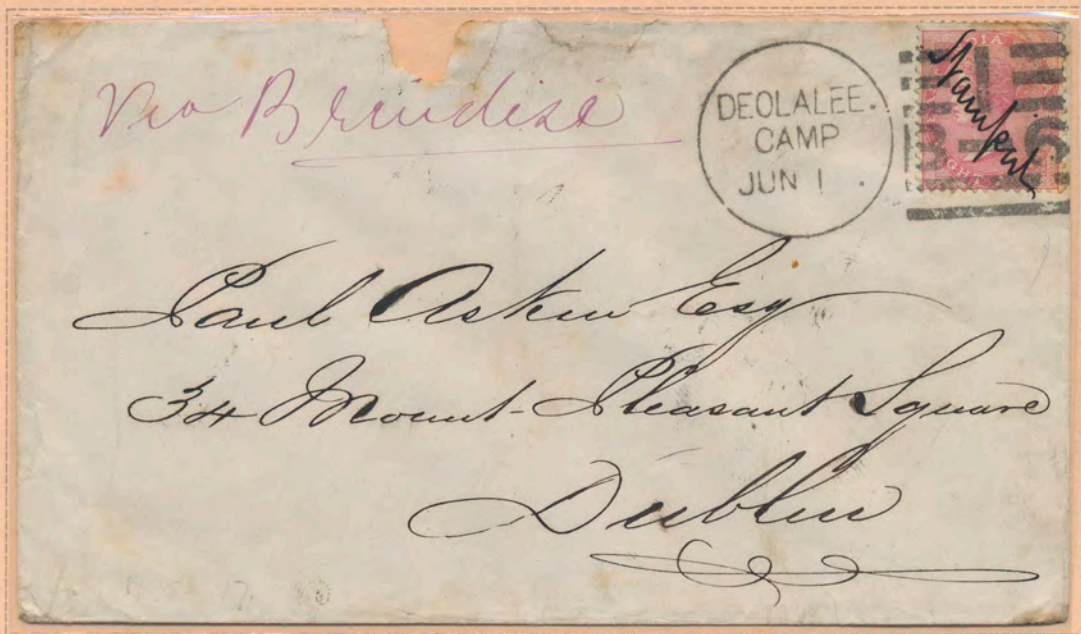 Via Brindisi
DEOLALEE.
CAMP
JUN 1.
Paul Askin Esq
34 Mount-Pleasant Square
Dublin